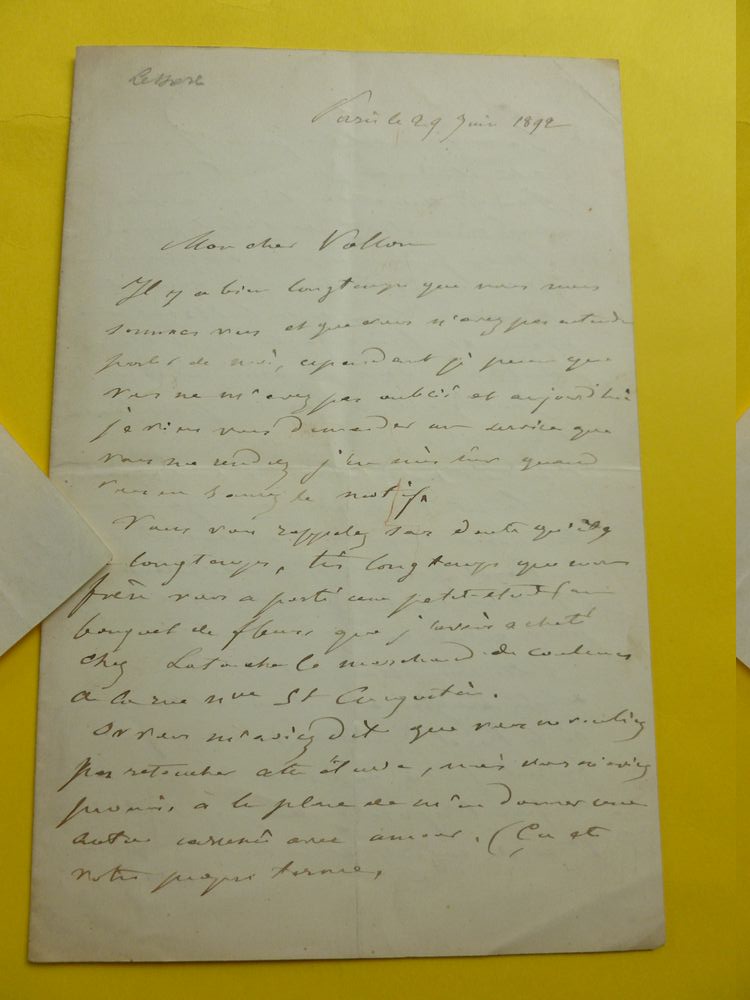 Paris le 29 Juin 1892
Mon cher Vollon
Il y a bien longtemps que nous nous
sommes vus et que vous n'avez pas entendu
parler de moi, cependant je pense que
vous ne m'avez pas oublié et aujourd'hui
je viens vous demander un service que
vous me rendrez j'en suis sûr quand
vous en saurez le motif.
Vous vous rappelez sans doute qu'il y a
longtemps, très longtemps que mon
frère vous a porté une petite étude un
bouquet de fleurs que j'avais acheté
chez Latouche le marchand de couleurs
de la rue nve St Augustin.
Or vous m'aviez dit que vous ne vouliez
pas retoucher cette étude, mais vous m'aviez
promis à la place de m'en donner une
autre avec amour. (Ça est
votre propre terme,